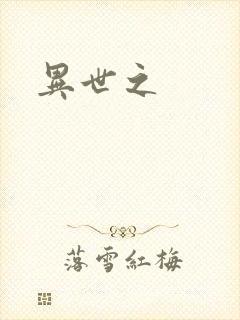 異世之
落雪紅梅